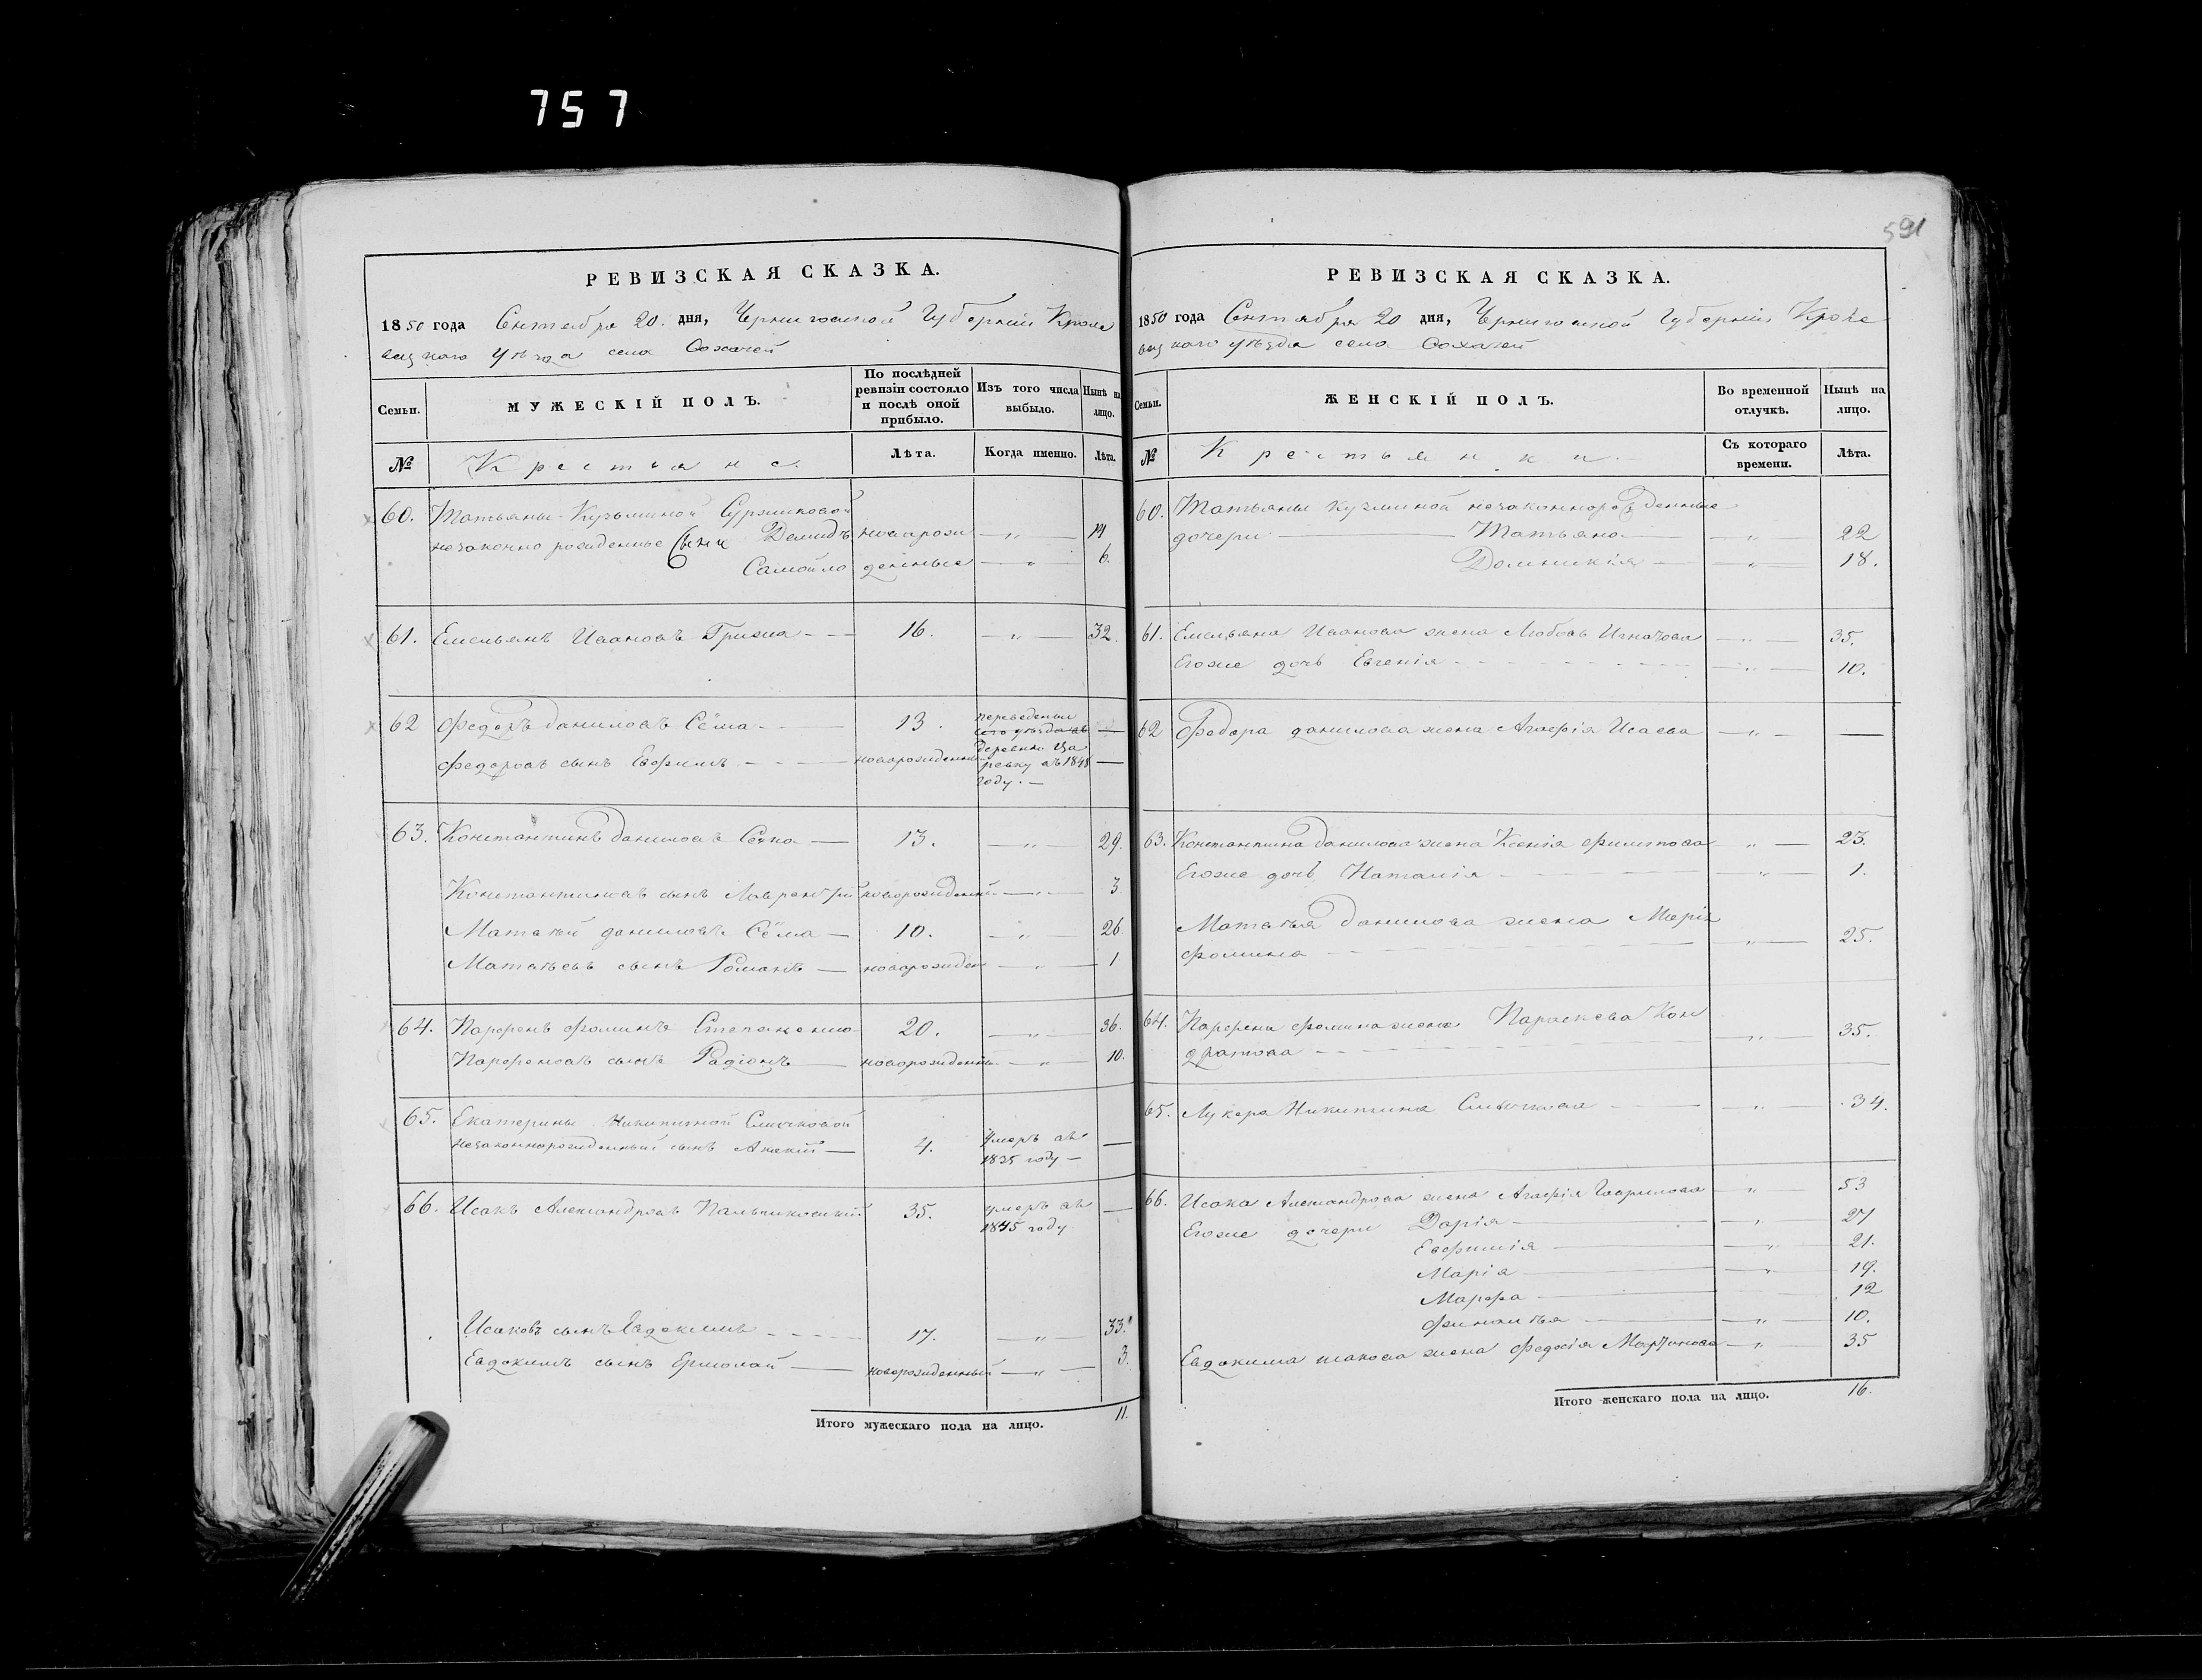 757
591
РЕВИЗСКАЯ СКАЗКА.
1850 года Сентября 20. дня, Черниговской Губерніи Кроле
вецкаго уѣзда села Сохачей
Семьи.
МУЖЕСКІЙ ПОЛЪ.
По послѣдней ревизіи состояло и послѣ оной прибыло.
Изъ того числа выбыло.
Нынѣ на лицо.
№
Крестьяне.
Лѣта.
Когда именно.
Лѣта.
60. Татьяны Кузьминой
незаконно рожденные сыны Демидъ новорож — „ — 14
Самойло денные — „ — 6.
61. Емельянъ Ивановъ Грижа - - - 16. — „ — 32.
62 Федоръ Даниловъ Сёма - - 13. переведены
сего уѣзда въ —
Федоровъ сынъ Евфимъ - - - новорожденный деревню Ца
ревку въ 1848 —
году. —
63. Константинъ Даниловъ Сёма — 13. — „ — 29.
Константиновъ сынъ Лаврентій новорожденный — „ — 3
Матвѣй Даниловъ Сёма — 10. — „ — 26
Матвѣевъ сынъ Романъ — новорожден — „ — 1
64. Парфенъ Фоминъ Степаненко 20. — „ — 36.
Парфеновъ сынъ Радіонъ — новорожденный — „ — 10.
65. Екатерины Никитиной
незаконнорожденный сынъ — 4. Умеръ въ —
1835 году —
66. Исакъ Александровъ 35. умеръ въ —
1845 году
Исаковъ сынъ Евдокимъ - - - 17. — „ — 33.
Евдокимъ сынъ Ермолай — новорожденный — „ — 3.
Итого мужескаго пола на лицо. 11.
РЕВИЗСКАЯ СКАЗКА.
1850 года Сентября 20 дня, Черниговской Губерніи Кроле
вецкаго уѣзда села Сохачей
Семьи.
ЖЕНСКІЙ ПОЛЪ.
Во временной отлучкѣ.
Нынѣ на лицо.
№
Крестьянки.
Съ котораго времени.
Лѣта.
60. Татьяны Кузминой незаконнорожденные
дочери — Татьяна — „ — 22
Домникія — „ — 18.
61. Емельяна Иванова жена Любовь Игнатова — „ — 35.
Егоже дочь Евгенія - - - — „ — 10.
62 Федора Данилова жена Агафія Исаева — „ — —
63. Константина Данилова жена Ксенія Филипова „ — 23.
Егоже дочь Наталія - - - „ — 1.
Матвѣя Данилова жена Марія
Фомина - - - „ — 25.
64. Парфена Фомина жена Параскева Кон
дратова - - - „ — 35.
65. Лукера Никитина — „ — 34.
66. Исака Александрова жена Агафія Гаврилова „ 53
Егоже дочери Дарія — „ — 27
Евфимія — „ — 21.
Марія — „ — 19.
Марфа — 12
— „ — 10.
Евдокима Исакова жена Федосія Мартинова — „ — 35
Итого женскаго пола на лицо. 16.